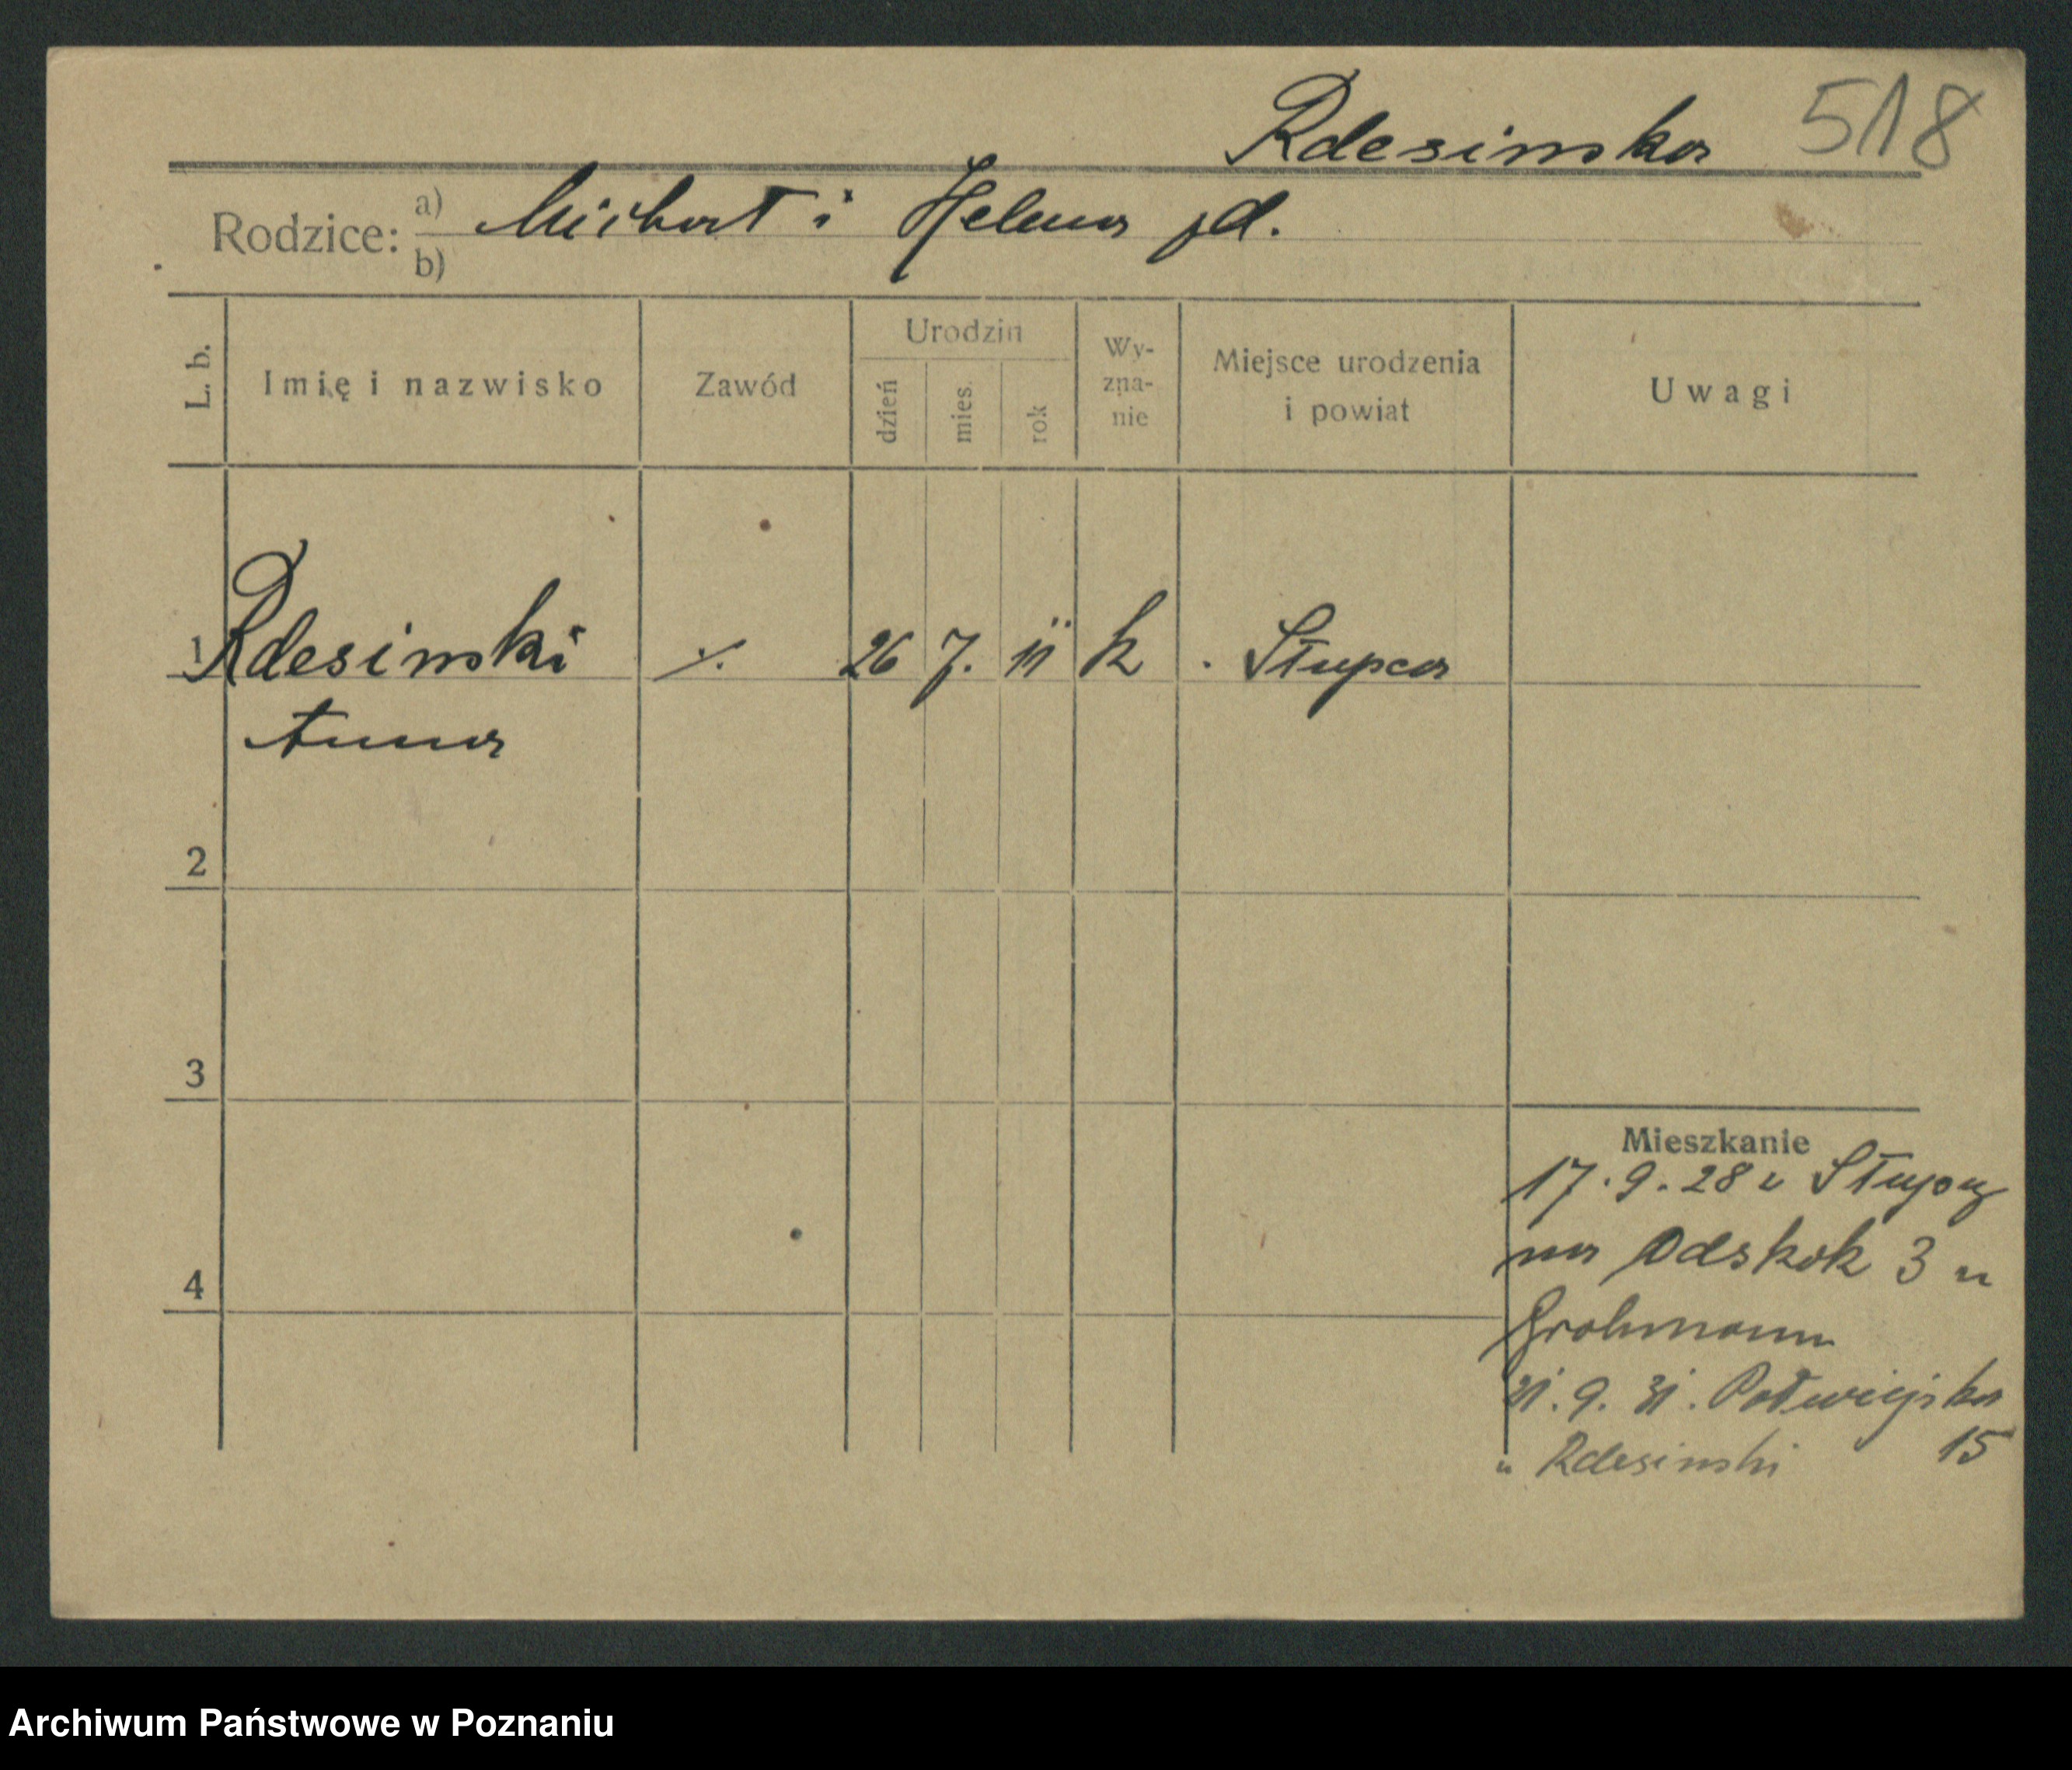 Rdesinska 518
Rodzice: a) Michał i Helena jd.
b)
L. b. Imię i nazwisko Zawód Urodzin dzień mies. rok Wy-zna-nie Miejsce urodzenia i powiat Uwagi
1 Rdesinski ·/. 26 7. 11 k Słupca
Anna
2
3
4
Mieszkanie
17.9.28 z Słupcy
na Odskok 3 u
Grohmann
Podwiejska
15
u Rdesinski
Archiwum Państwowe w Poznaniu